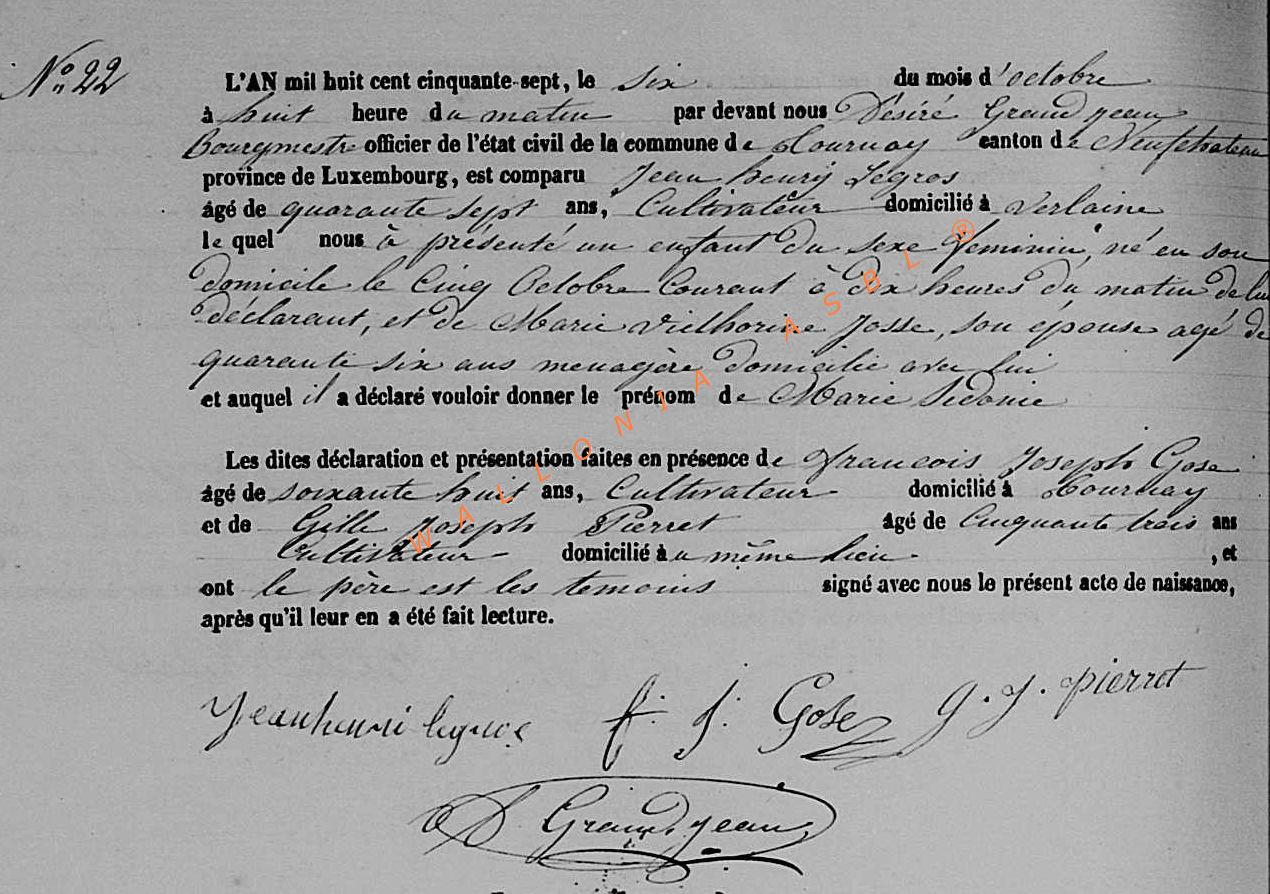 N° 22
L'AN mil huit cent cinquante-sept, le six du mois d'octobre
à huit heure du matin par devant nous Désiré Grandjean
Bourgmestre officier de l'état civil de la commune de Tournay canton de Neufchateau
province de Luxembourg, est comparu Jean henry Legros
âgé de quarante sept ans, Cultivateur domicilié à Verlaine
le quel nous à présenté un enfant du sexe feminin, né en son
domicile le Cinq Octobre Courant à dix heures du matin de lui
déclarant, et de Marie Josse, son épouse agé de
quarante six ans menagère domicilié avec lui
et auquel il a déclaré vouloir donner le prénom de Marie Sidonie
Les dites déclaration et présentation faites en présence de francois Joseph Gose
âgé de soixante huit ans, Cultivateur domicilié à Tournay
et de Gille Joseph Pierret âgé de Cinquante trois ans
Cultivateur domicilié àu même lieu , et
ont le père est les temoins signé avec nous le présent acte de naissance,
après qu'il leur en a été fait lecture.
Jean henri legros f. j. Gose g. j. pierret
D Grandjean
WALLONIA ASBL ®